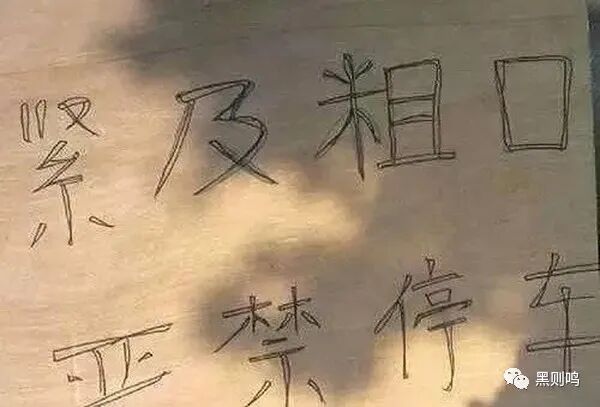 紧及粗口
严禁停车
黑则鸣